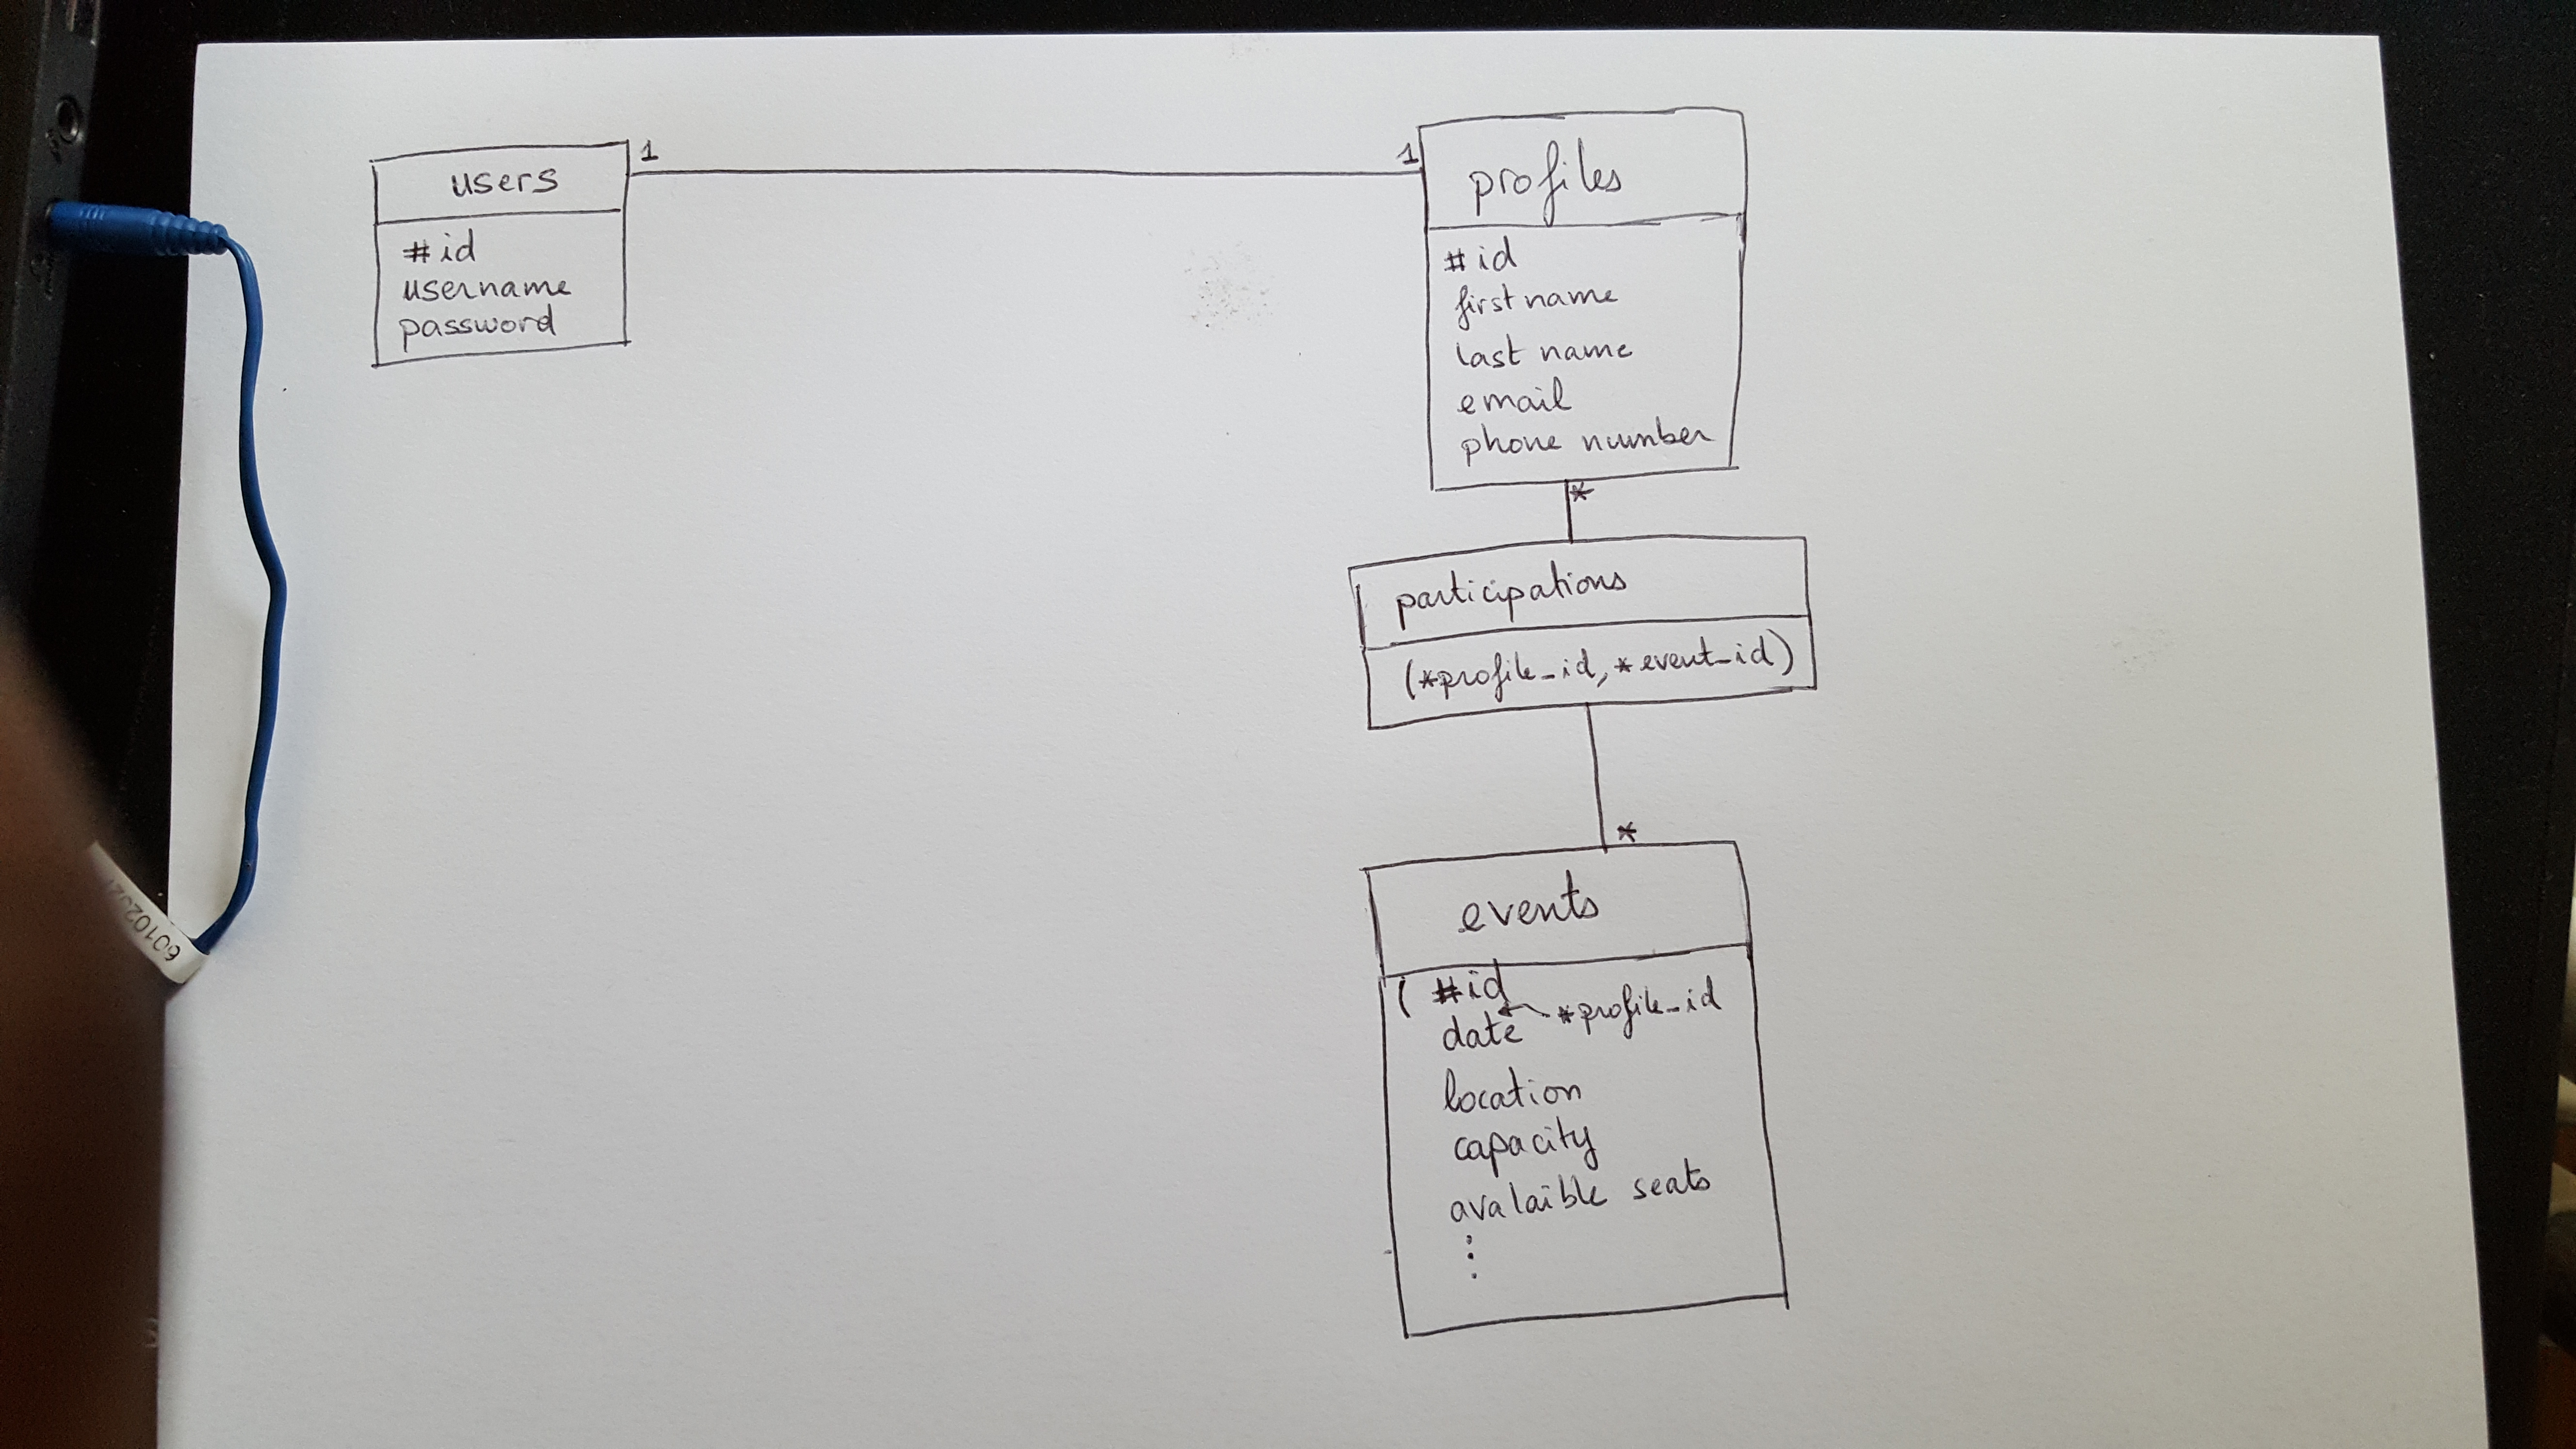 users
#id
username
password
1
1
profiles
#id
first name
last name
email
phone number
*
participations
(*profile_id, *event_id)
*
events
(#id *profile_id
date
location
capacity
avalaible seats